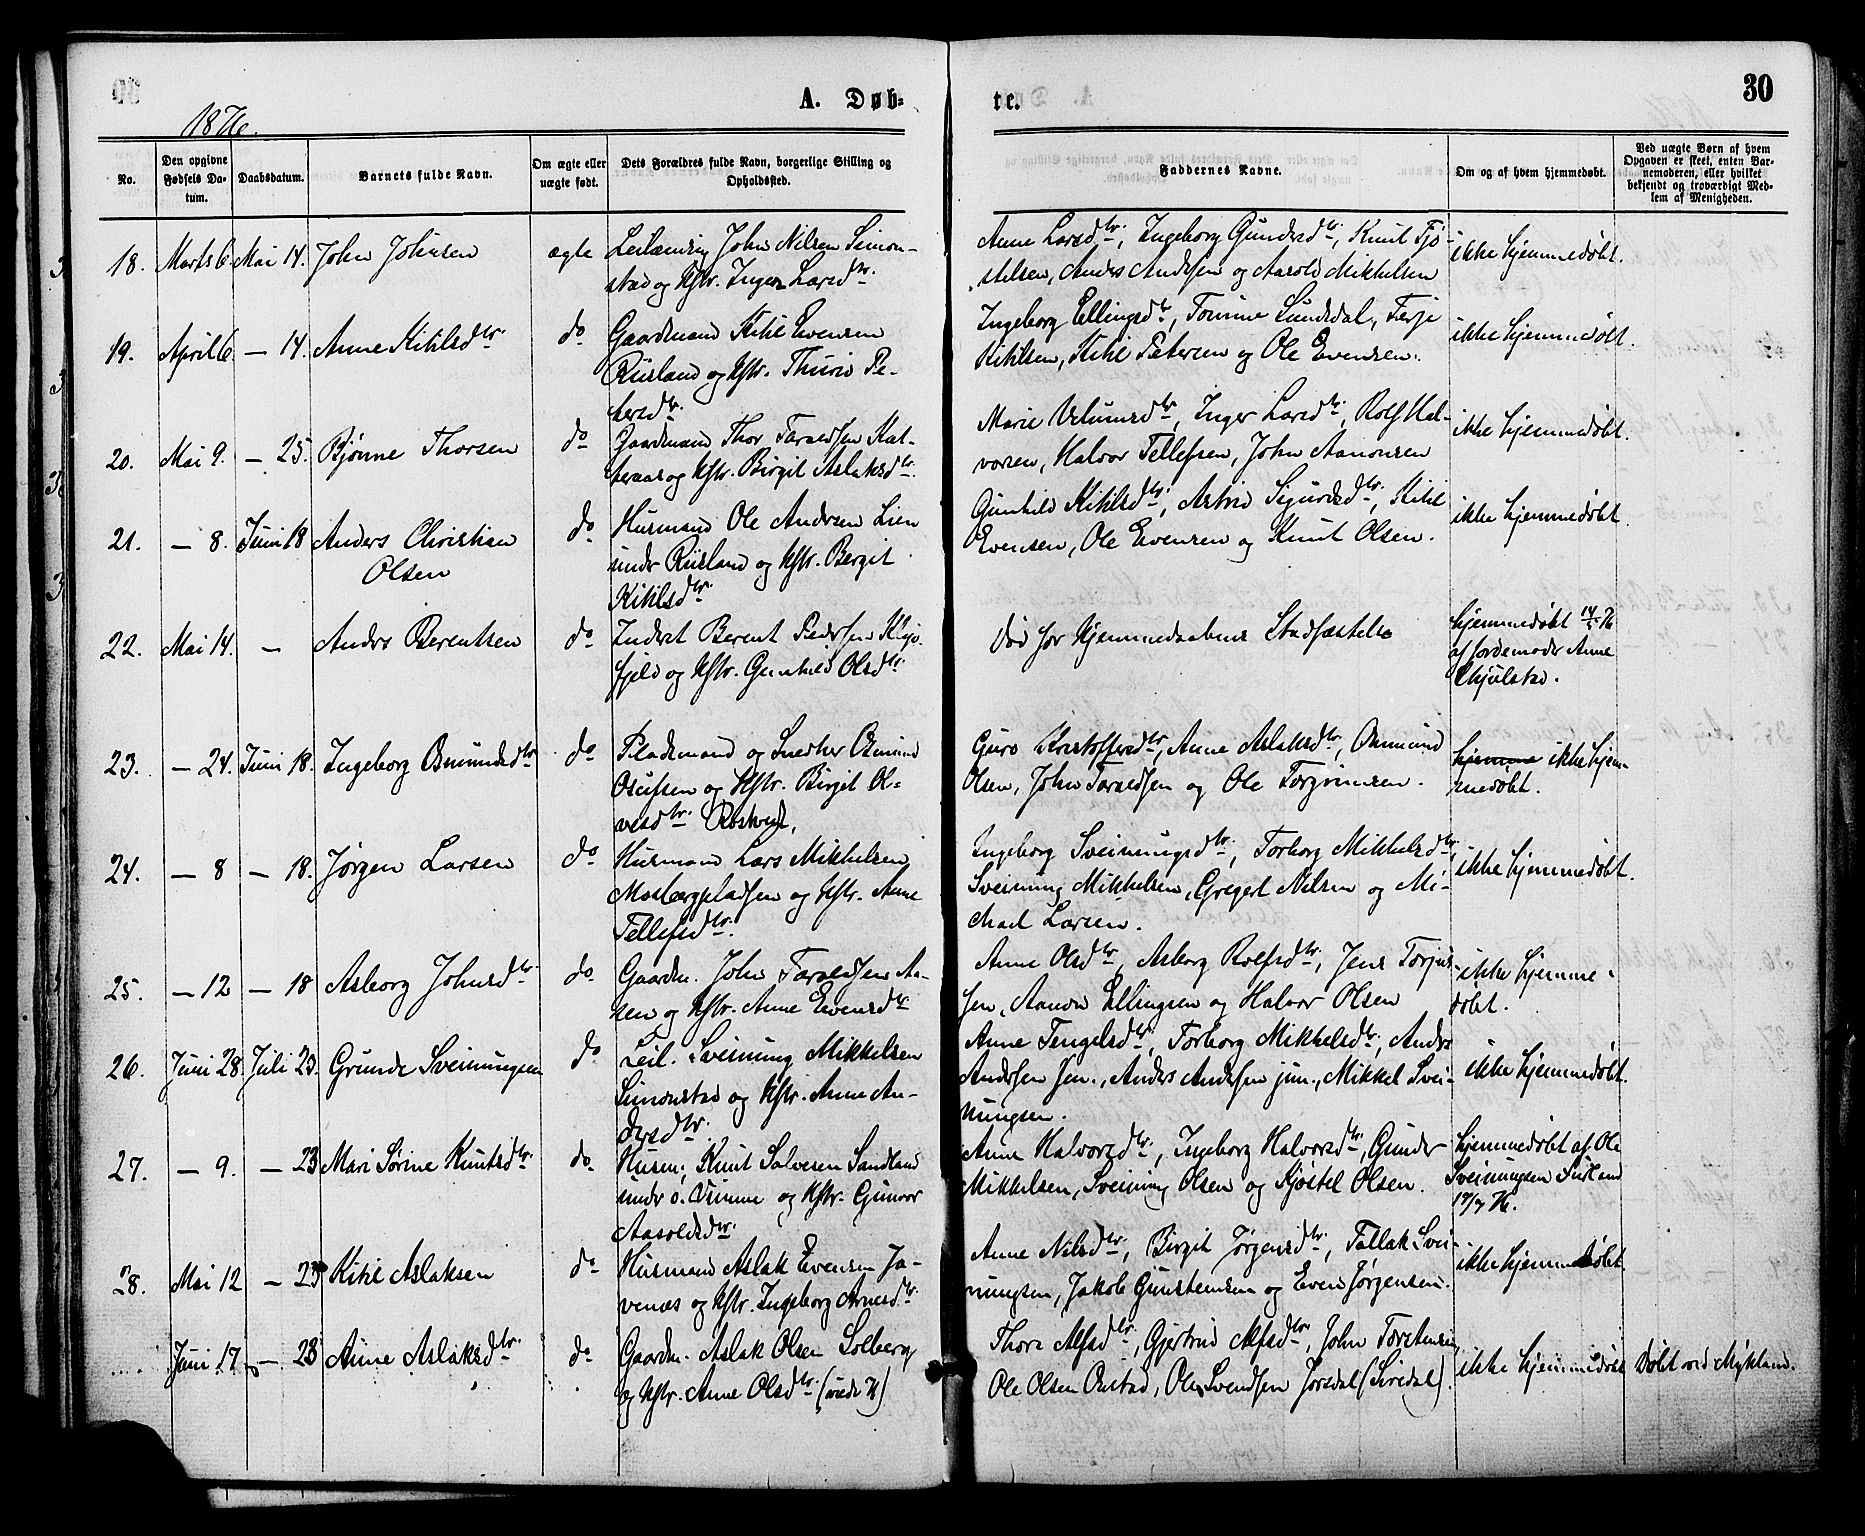 A. Døb-
te.
30
1876.
No.
Den opgivne
Fødsels Da-
tum.
Daabsdatum.
Barnets fulde Navn.
Om ægte eller
uægte født.
Dets Forældres fulde Navn, borgerlige Stilling og
Opholdssted.
Faddernes Navne.
Om og af hvem hjemmedøbt.
Ved uægte Børn af hvem
Opgaven er skeet, enten Bar-
nemoderen, eller hvilket
bekjendt og troværdigt Med-
lem af Menigheden.
18. Marts 6 Mai 14. John Johnsen ægte
Leilænding John Nilsen Simon-
stad og Hstr. Inger Larsdtr.
Anne Larsdtr., Ingeborg Gundersdtr., Knut Tjø-
stelsen, Anders Andersen og Aasold Mikkelsen
ikke hjemmedøbt.
19. April 6 — 14. Anne Kitilsdtr. do
Gaardmand Kitil Evensen
Risland og Hstr. Thurid Pe-
tersdtr.
Ingeborg Ellingsdtr., Tomine Lundsdal, Terje
Kitilsen, Kitil Petersen og Ole Evensen.
ikke hjemmedøbt.
20. Mai 9. — 25. Bjønne Thorsen do
Gaardmand Thor Taraldsen Kat-
teraas og Hstr. Birgit Aslaksdtr.
Marie Villumsdtr., Inger Larsdtr., Rolf Hal-
vorsen, Halvor Tellefsen, John Aanonsen
ikke hjemmedøbt.
21. — 8. Juni 18 Anders Christian
Olsen
do
Husmand Ole Andersen Lien
under Risland og Hstr. Bergit
Kitilsdtr.
Gunhild Kitilsdtr., Astrid Sigurdsdtr., Kitil
Evensen, Ole Evensen og Knut Olsen.
ikke hjemmedøbt.
22. Mai 14. — Anders Berentsen do
Inderst Berent Pedersen
fjeld og Hstr. Gunhild Olsdtr.
Død før Hjemmedaabens Stadfæstelse
hjemmedøbt 14/5 76
af Jordemoder Anne
23. — 24. Juni 18. Ingeborg Osmundsdtr. do
Pladsmand og Snedker Osmund
Osulfsen og Hstr. Birgit Ol-
vesdtr.
Guro Kristoffersdtr., Anne Aslaksdtr., Osmund
Olsen, John Taraldsen og Ole Torgrimsen.
hjemme ikke hjem-
medøbt.
24. — 8 — 18. Jørgen Larsen do
Husmand Lars Mikkelsen
Mosbergpladsen og Hstr. Anne
Tellefsdtr.
Ingeborg Sveinungsdtr., Torborg Mikkelsdtr.,
Sveinung Mikkelsen, Gregert Nilsen og Mi-
chael Larsen.
ikke hjemmedøbt.
25. — 12 — 18 Asborg Johnsdtr. do
Gaardm. John Taraldsen Aa-
sen og Hstr. Anne Evensdtr.
Anne Olsdtr., Asborg Rolfsdtr., Jens Torjus-
sen, Aanon Ellingsen og Halvor Olsen
ikke hjemme-
døbt.
26. Juni 28. Juli 23. Grunde Sveinungsen do
Leil. Sveinung Mikkelsen
Simonstad og Hstr. Anne An-
dersdtr.
Anne Tengelsdtr., Torborg Mikkelsdtr., Anders
Andersen sen., Anders Andersen jun., Mikkel Svei-
nungsen.
ikke hjemmedøbt.
27. — 9. — 23 Mari Sørine Knutsdtr. do
Husm. Knut Salvesen Sandland
under ø. Vimme og Hstr. Gunvor
Aasoldsdtr.
Anne Halvorsdtr., Ingeborg Halvorsdtr., Gunder
Mikkelsen, Sveinung Olsen og Kjøstel Olsen.
hjemmedøbt af Ole
Sveinungsen
19/7 76.
28. Mai 12 — 23 Kitil Aslaksen do
Husmand Aslak Evensen Ja-
venæs og Hstr. Ingeborg Arnesdtr.
Anne Nilsdtr., Birgit Jørgensdtr., Tallak Svei-
nungsen, Jakob Gunstensen og Even Jørgensen.
ikke hjemmedøbt
Juni 17 — 23 Anne Aslaksdtr. do
Gaardm. Aslak Olsen Solberg
og Hstr. Anne Olsdtr.
Thore Alfsdtr., Gjertrud Alfsdtr., John Torstensen,
Ole Olsen Ovstad, Ole Svendsen Jorsdal (Siredal).
ikke hjemmedøbt
Døbt ved Mykland.